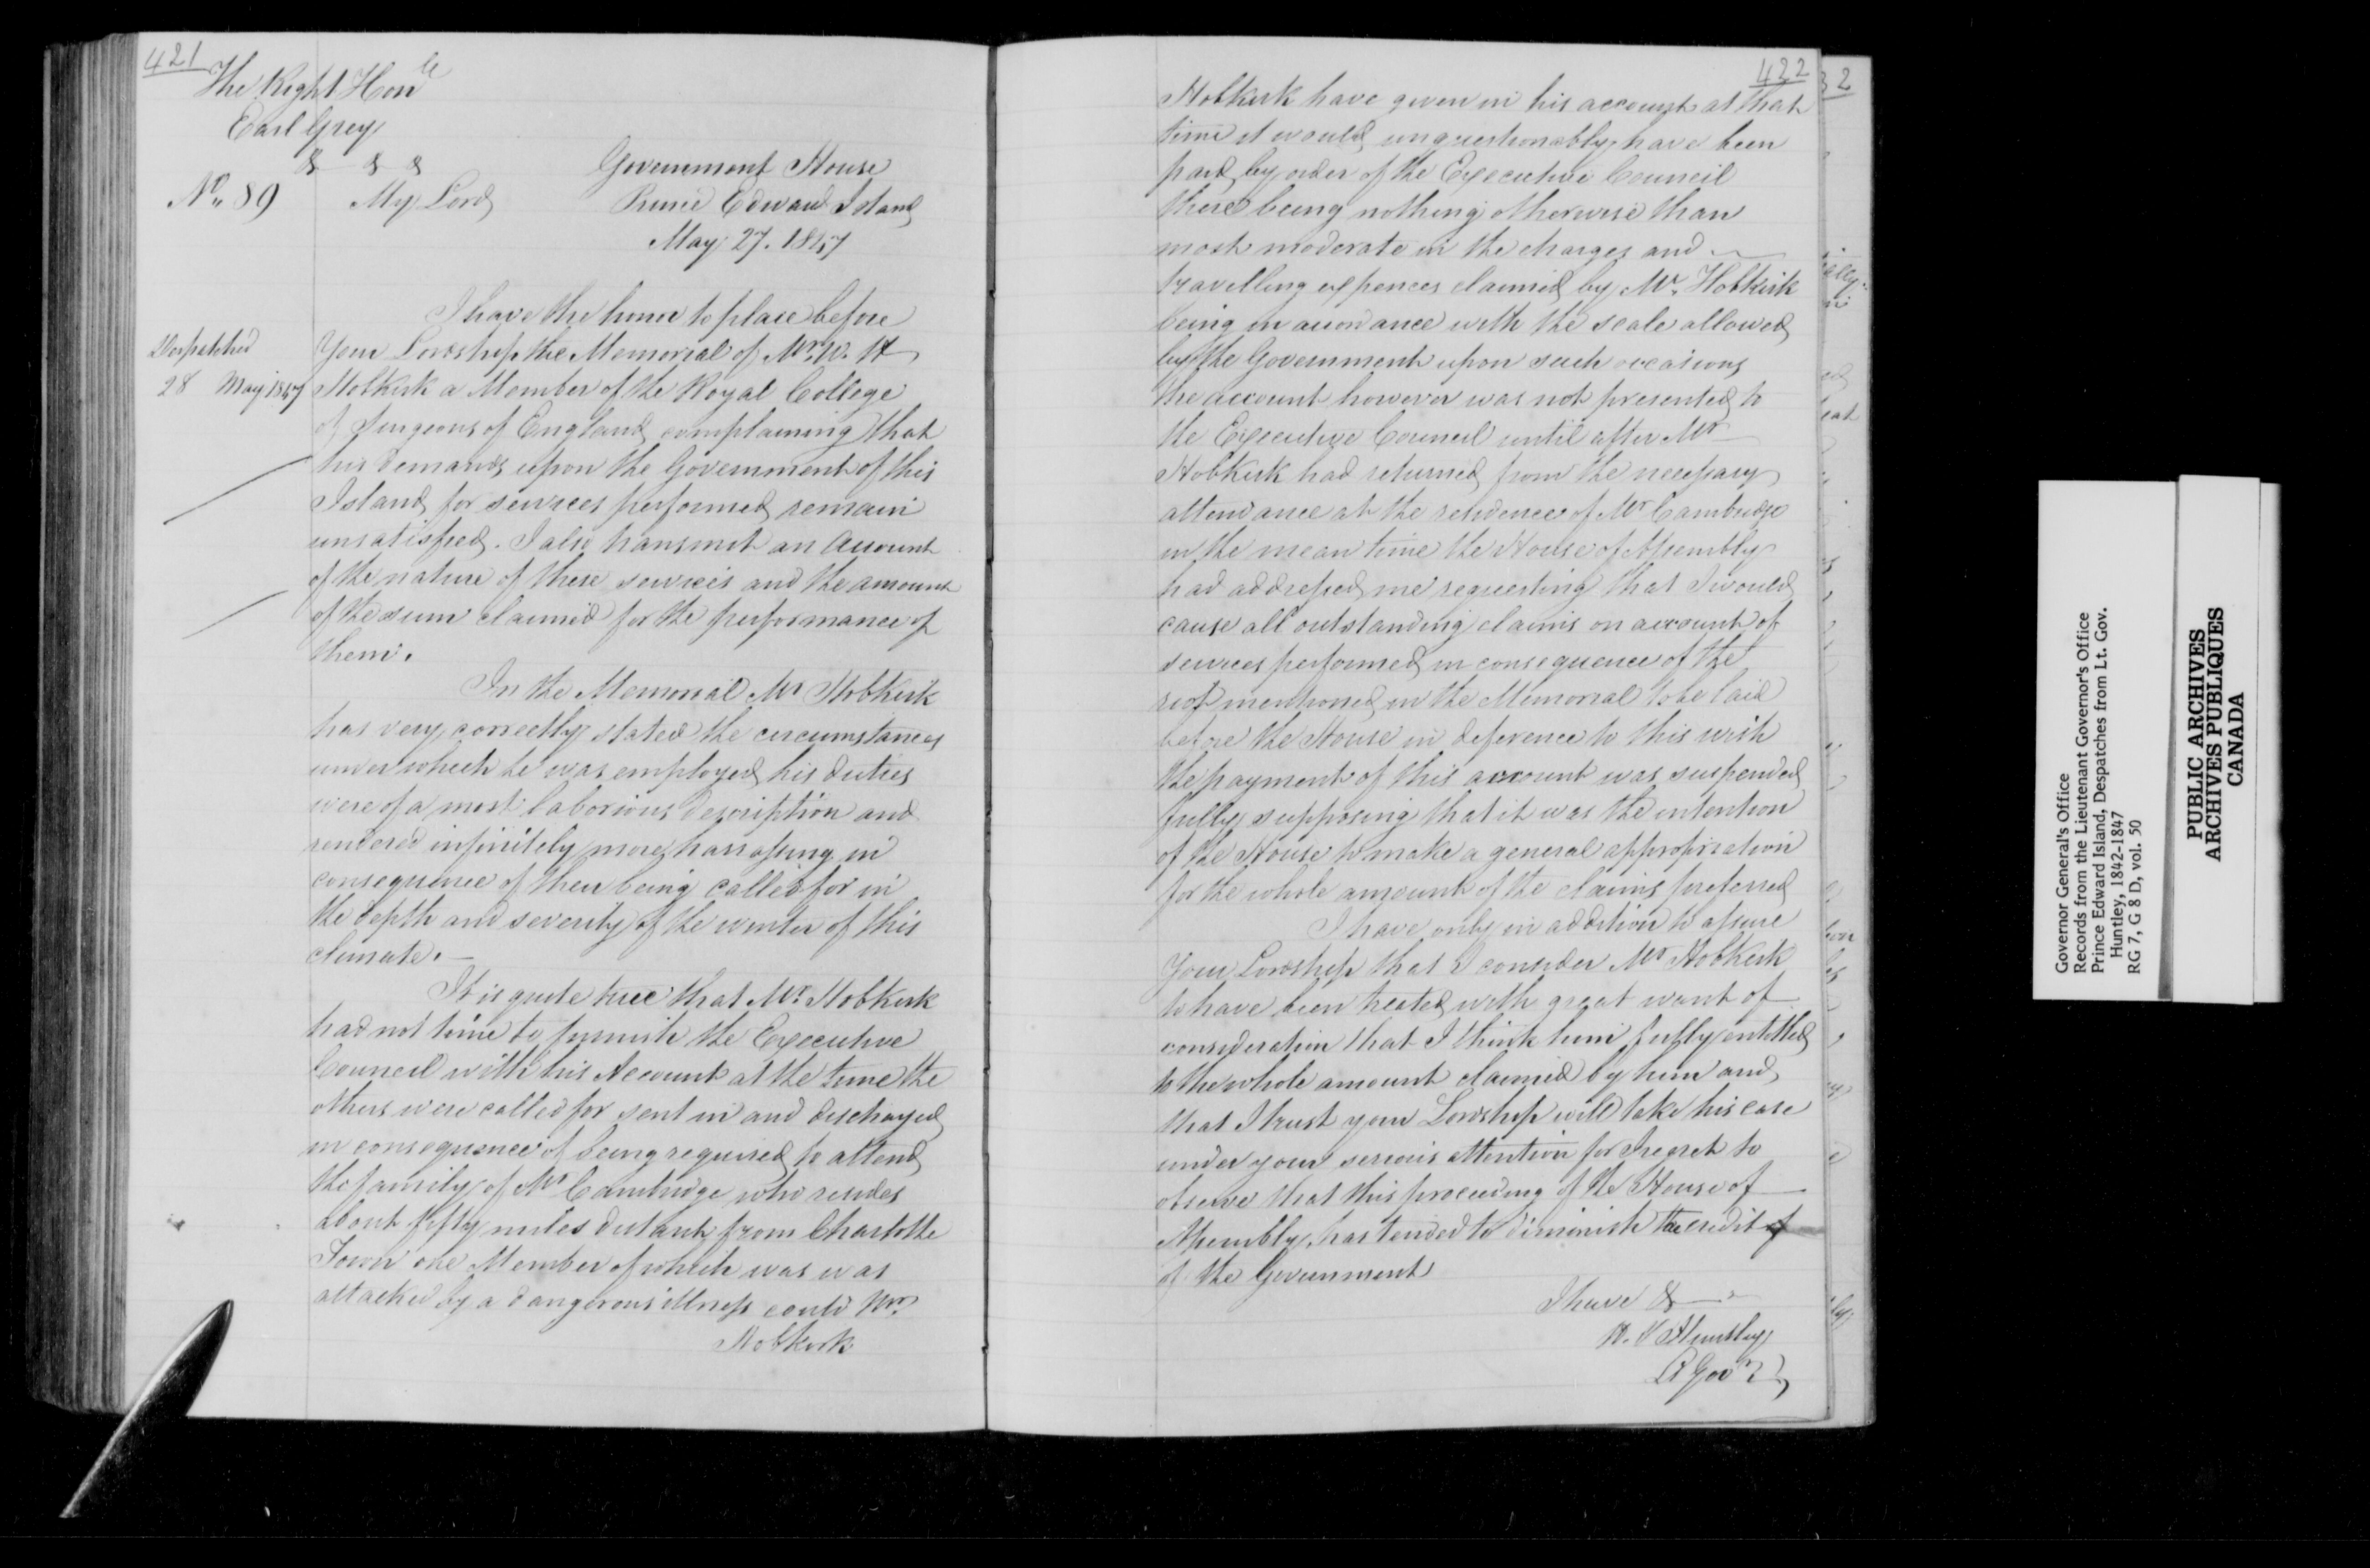 421
The Right Honle
Earl Grey
& & &
Government House
No. 89
My Lord
Prince Edward Island
May 27. 1847
I have the honor to place before
Despatched
28 May 1847
Your Lordship the Memorial of Mr. W. H
Hobkirk a Member of the Royal College
of Surgeons of England complaining that
his demands upon the Government of this
Island for services performed remain
unsatisfied. I also transmit an Account
of the nature of these services and the amount
of the sum claimed for the performance of
them.
In the Memorial Mr Hobkirk
has very correctly stated the circumstances
under which he was employed his duties
were of a most laborious description and
rendered infinitely more harrassing in
consequence of their being called for in
the depth and severity of the winter of this
climate. —
It is quite true that Mr. Hobkirk
had not time to furnish the Executive
Council with his Account at the time the
others were called for sent in and discharged
in consequence of being required to attend
the family of Mr Cambridge who resides
about fifty miles distant from Charlotte
Town one Member of which was was
attacked by a dangerous illness could Mr.
Hobkirk
422
Hobkirk have given in his account at that
time it would unquestionably have been
paid by order of the Executive Council
there being nothing otherwise than
most moderate in the charges and
travelling expences claimed by Mr. Hobkirk
being in accordance with the scale allowed
by the Government upon such occasions
the account however was not presented to
the Executive Council until after Mr
Hobkirk had returned from the necessary
attendance at the residence of Mr Cambridge
in the mean time the House of Assembly
had addressed me requesting that I would
cause all outstanding claims on account of
services performed in consequence of the
riot mentioned in the Memorial to be laid
before the House in deference to this wish
the payment of this account was suspended
fully supposing that it was the intention
of the House to make a general appropriation
for the whole amount of the claims preferred
I have only in addition to assure
Your Lordship that I consider Mr Hobkirk
to have been treated with great want of
consideration that I think him fully entitled
to the whole amount claimed by him and
that I trust your Lordship will take his case
under your serious attention for I regret to
observe that this proceeding of the House of
Assembly has tended to diminish the credit of
of the Government
I have &
H. V Huntley
Lt Govr
Governor General's Office
Records from the Lieutenant Governor's Office
Prince Edward Island, Despatches from Lt. Gov.
Huntley, 1842-1847
RG 7, G 8 D, vol. 50
PUBLIC ARCHIVES
ARCHIVES PUBLIQUES
CANADA